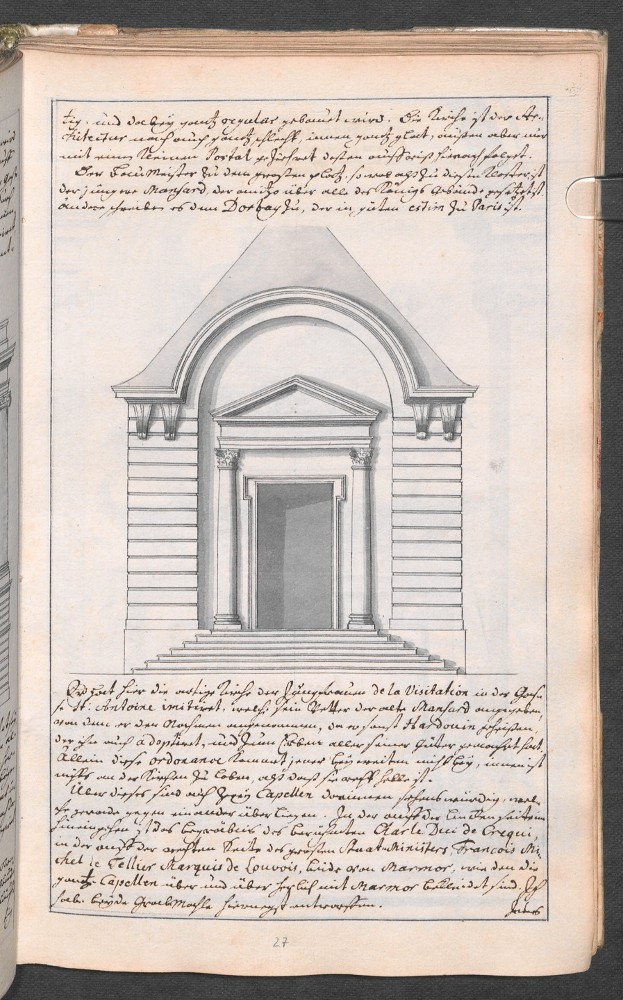 tig, und dabey gantz regular gebauet wird. Die Kirche ist der Ar-
chitectur nach auch gantz schlecht, innen gantz glat, außen aber nur
mit einem kleinen Portal gezieret dessen aufriß hiernach folget.
Der Baumeister zu dem großen platz, sowol als zu diesem Kloster ist
der jüngere Mansard, der anitzo über alle des Königs Gebäude gesetzet ist.
Andere schreiben es dem Dorbay zu, der in guten estim zu Paris ist.
Er hat hier die artige Kirche der Jungfrauen de la Visitation in der Gaße
St. Antoine imitiret, welche sein Vetter der alte Mansard angegeben,
von dem er den Nahmen angenommen, da er sonst Hardouin geheißen,
der ihn auch adoptiret, und zum Erben aller seiner Güter gemacht hat.
Allein diese ordonance kommt jener bey weiten nicht bey, innen ist
nichts an der Kirchen zu loben, als daß sie recht helle ist.
Über dieses sind noch zwey Capellen darinnen sehens würdig, wel-
che gerade gegen einander über liegen. In der auf der lincken seiten im
hineingehen ist das begräbnis des berühmten Charle Duc de Crequi,
in der auf der rechten Seite des großen Staat-Ministers, François Mi-
chel le Tellier Marquis de Louvois, beide von Marmor, wie den die
gantze Capellen über und über herrlich mit Marmor bekleidet sind. Ich
habe beyde Grabmahle hiernegst entworffen.
27